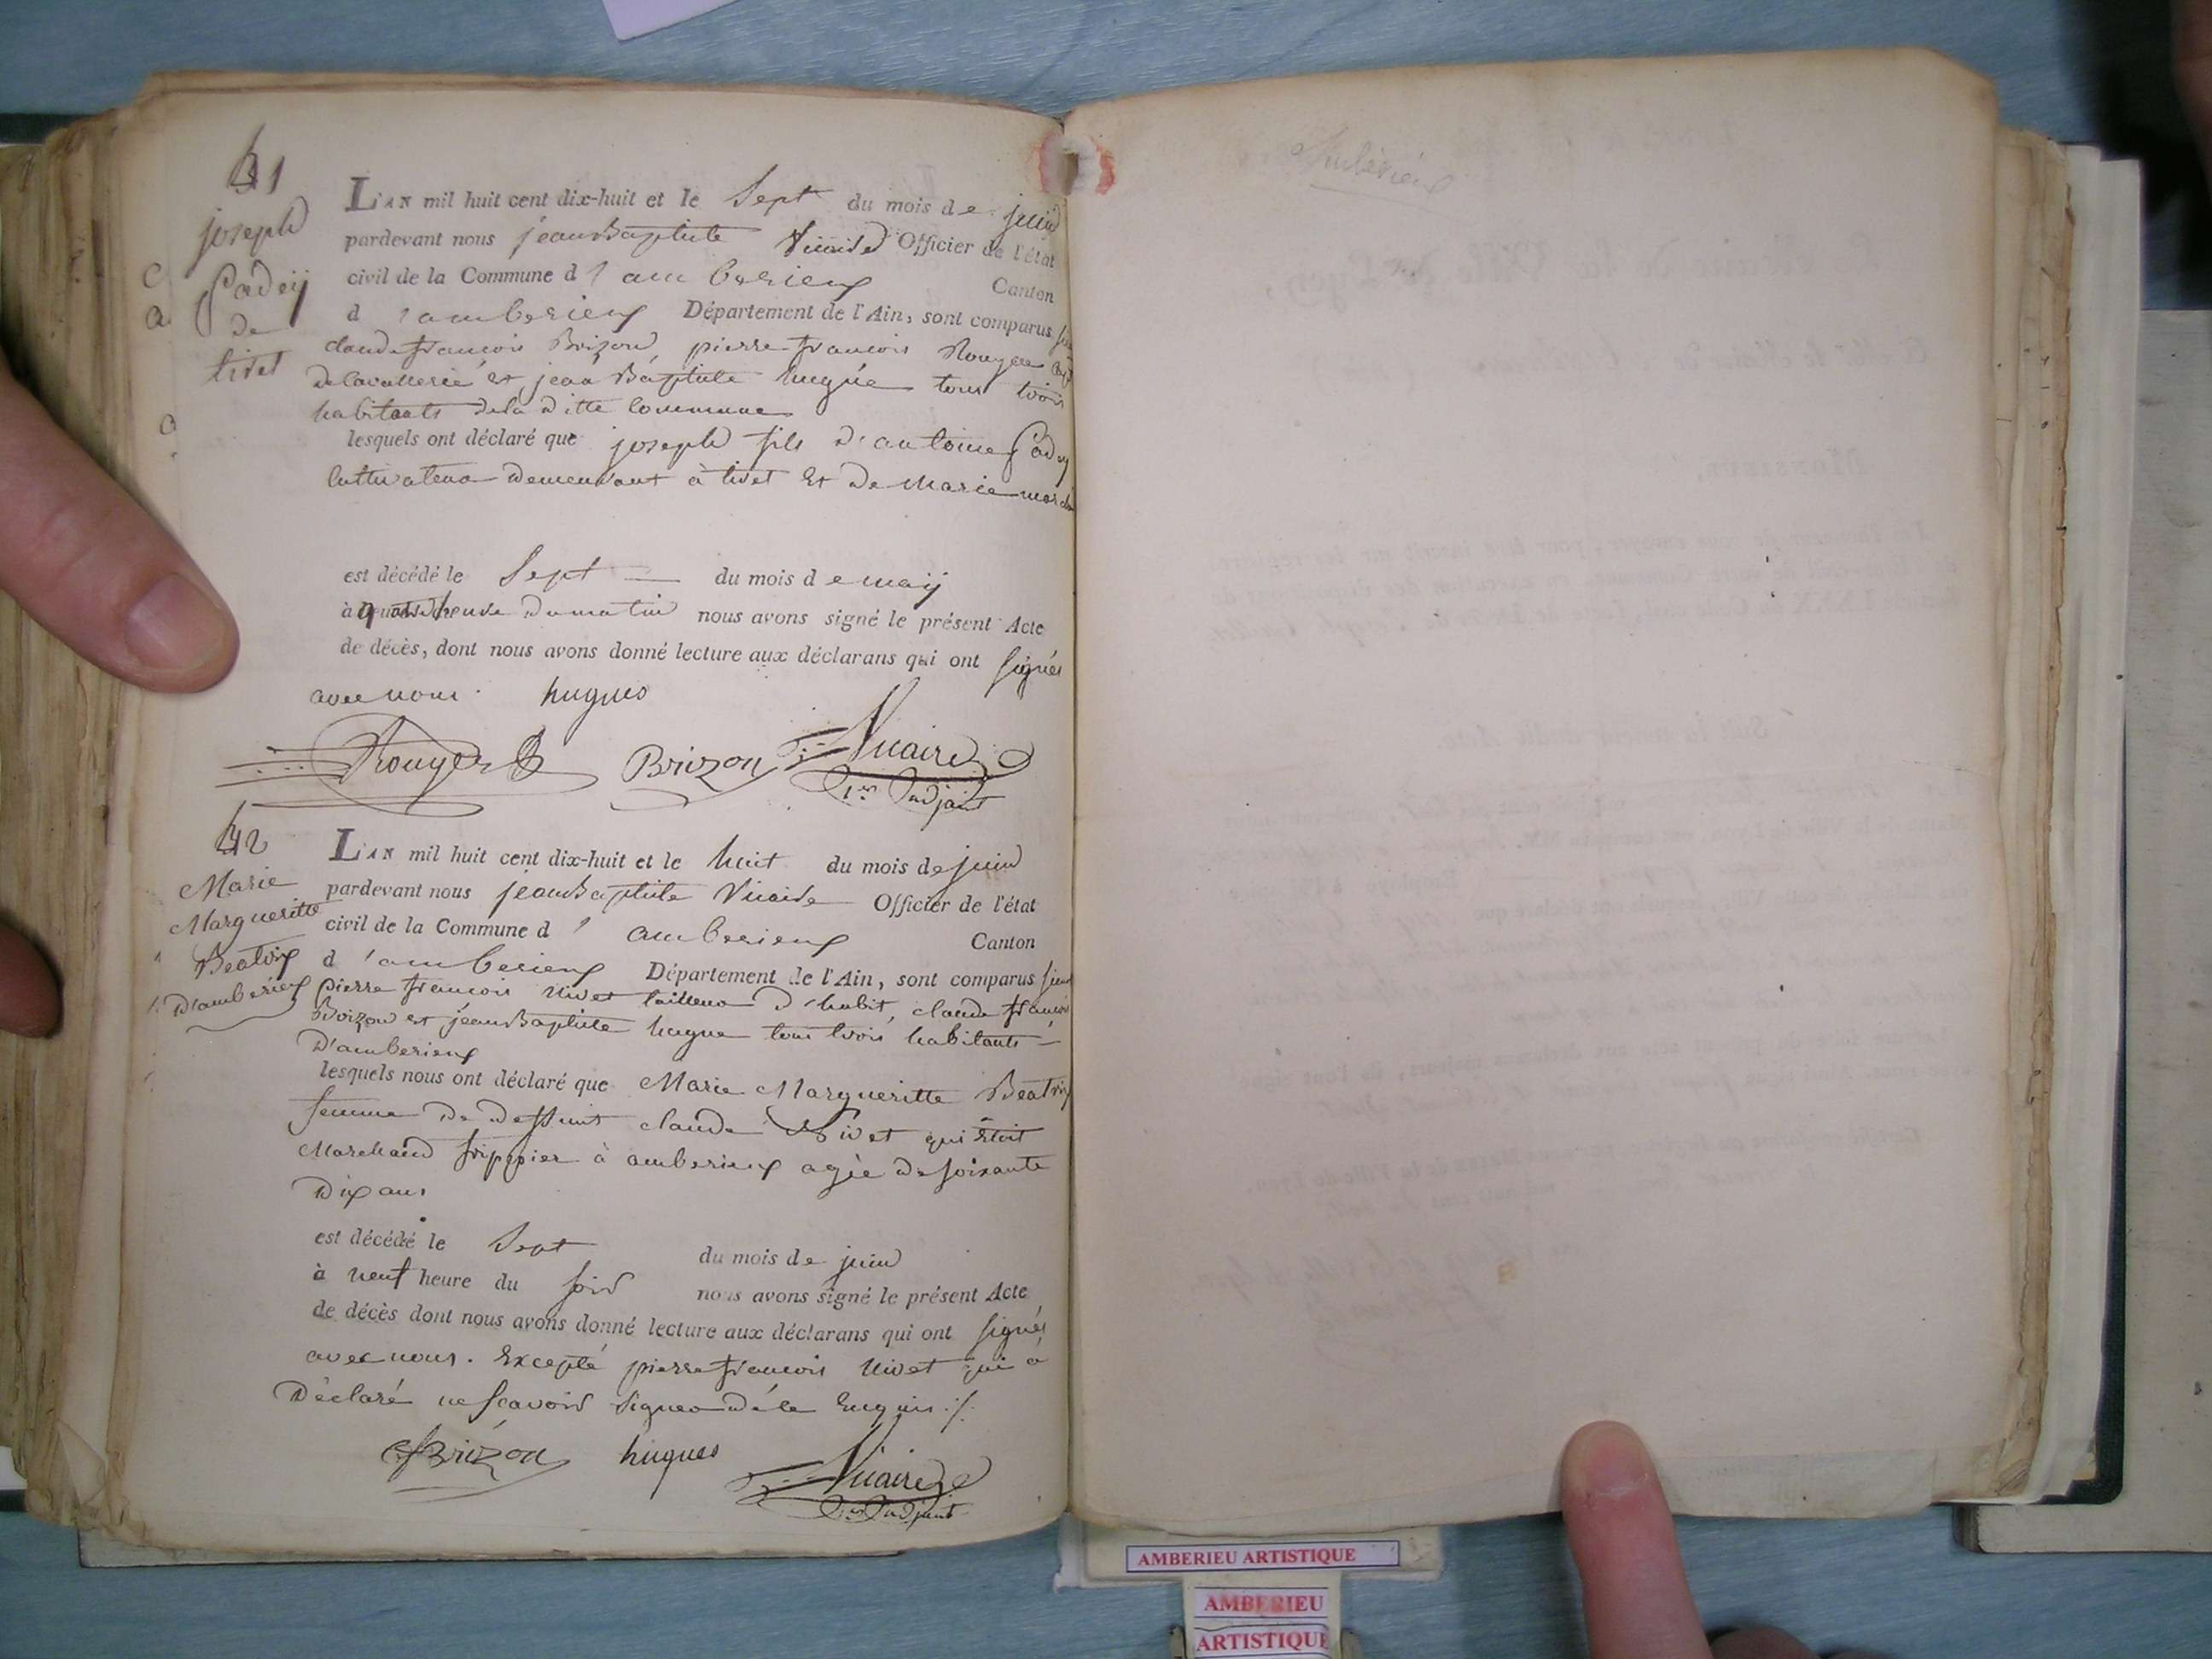 41
joseph
Cadeij
de
tiret
L'AN mil huit cent dix-huit et le Sept du mois de juin
pardevant nous jean Baptiste Vicaire Officier de l'état
civil de la Commune d'amberieux Canton
d'amberieux Département de l'Ain, sont comparus
claude francois Brizon, pierre francois Rouyer
de cavallerie et jean Baptiste hugue tous trois
habitants de la ditte Commune
lesquels ont déclaré que joseph fils d'antoine Cadey
Cultivateur demeurant à tiret Et de Marie
est décédé le Sept du mois de maij
à heure du matin nous avons signé le présent Acte
de décès, dont nous avons donné lecture aux déclarans qui ont signés
avec nous. hugues
Rouyer Brizon Vicaire
1er adjoint
42
Marie
Margueritte
Beatrix
D'amberieux
L'AN mil huit cent dix-huit et le huit du mois de juin
pardevant nous jean Baptiste Vicaire Officier de l'état
civil de la Commune d'amberieux Canton
d'amberieux Département de l'Ain, sont comparus
pierre francois Nivet tailleur d'habit, claude francois
Brizon et jean Baptiste hugue tous trois habitants
D'amberieux
lesquels nous ont déclaré que Marie Margueritte Beatrix
femme de deffunt claude Nivet qui Etoit
Marchand frippier à amberieux agée de soixante
Dix ans
est décédé le Sept du mois de juin
à neuf heure du soir nous avons signé le présent Acte
de décès dont nous avons donné lecture aux déclarans qui ont signés
avec nous. Excepté pierre francois Nivet qui a
Déclaré ne scavoir signer de ce Enquis
Brizon hugues Vicaire
1er adjoint
Ambérieux
AMBERIEU ARTISTIQUE
AMBERIEU
ARTISTIQUE